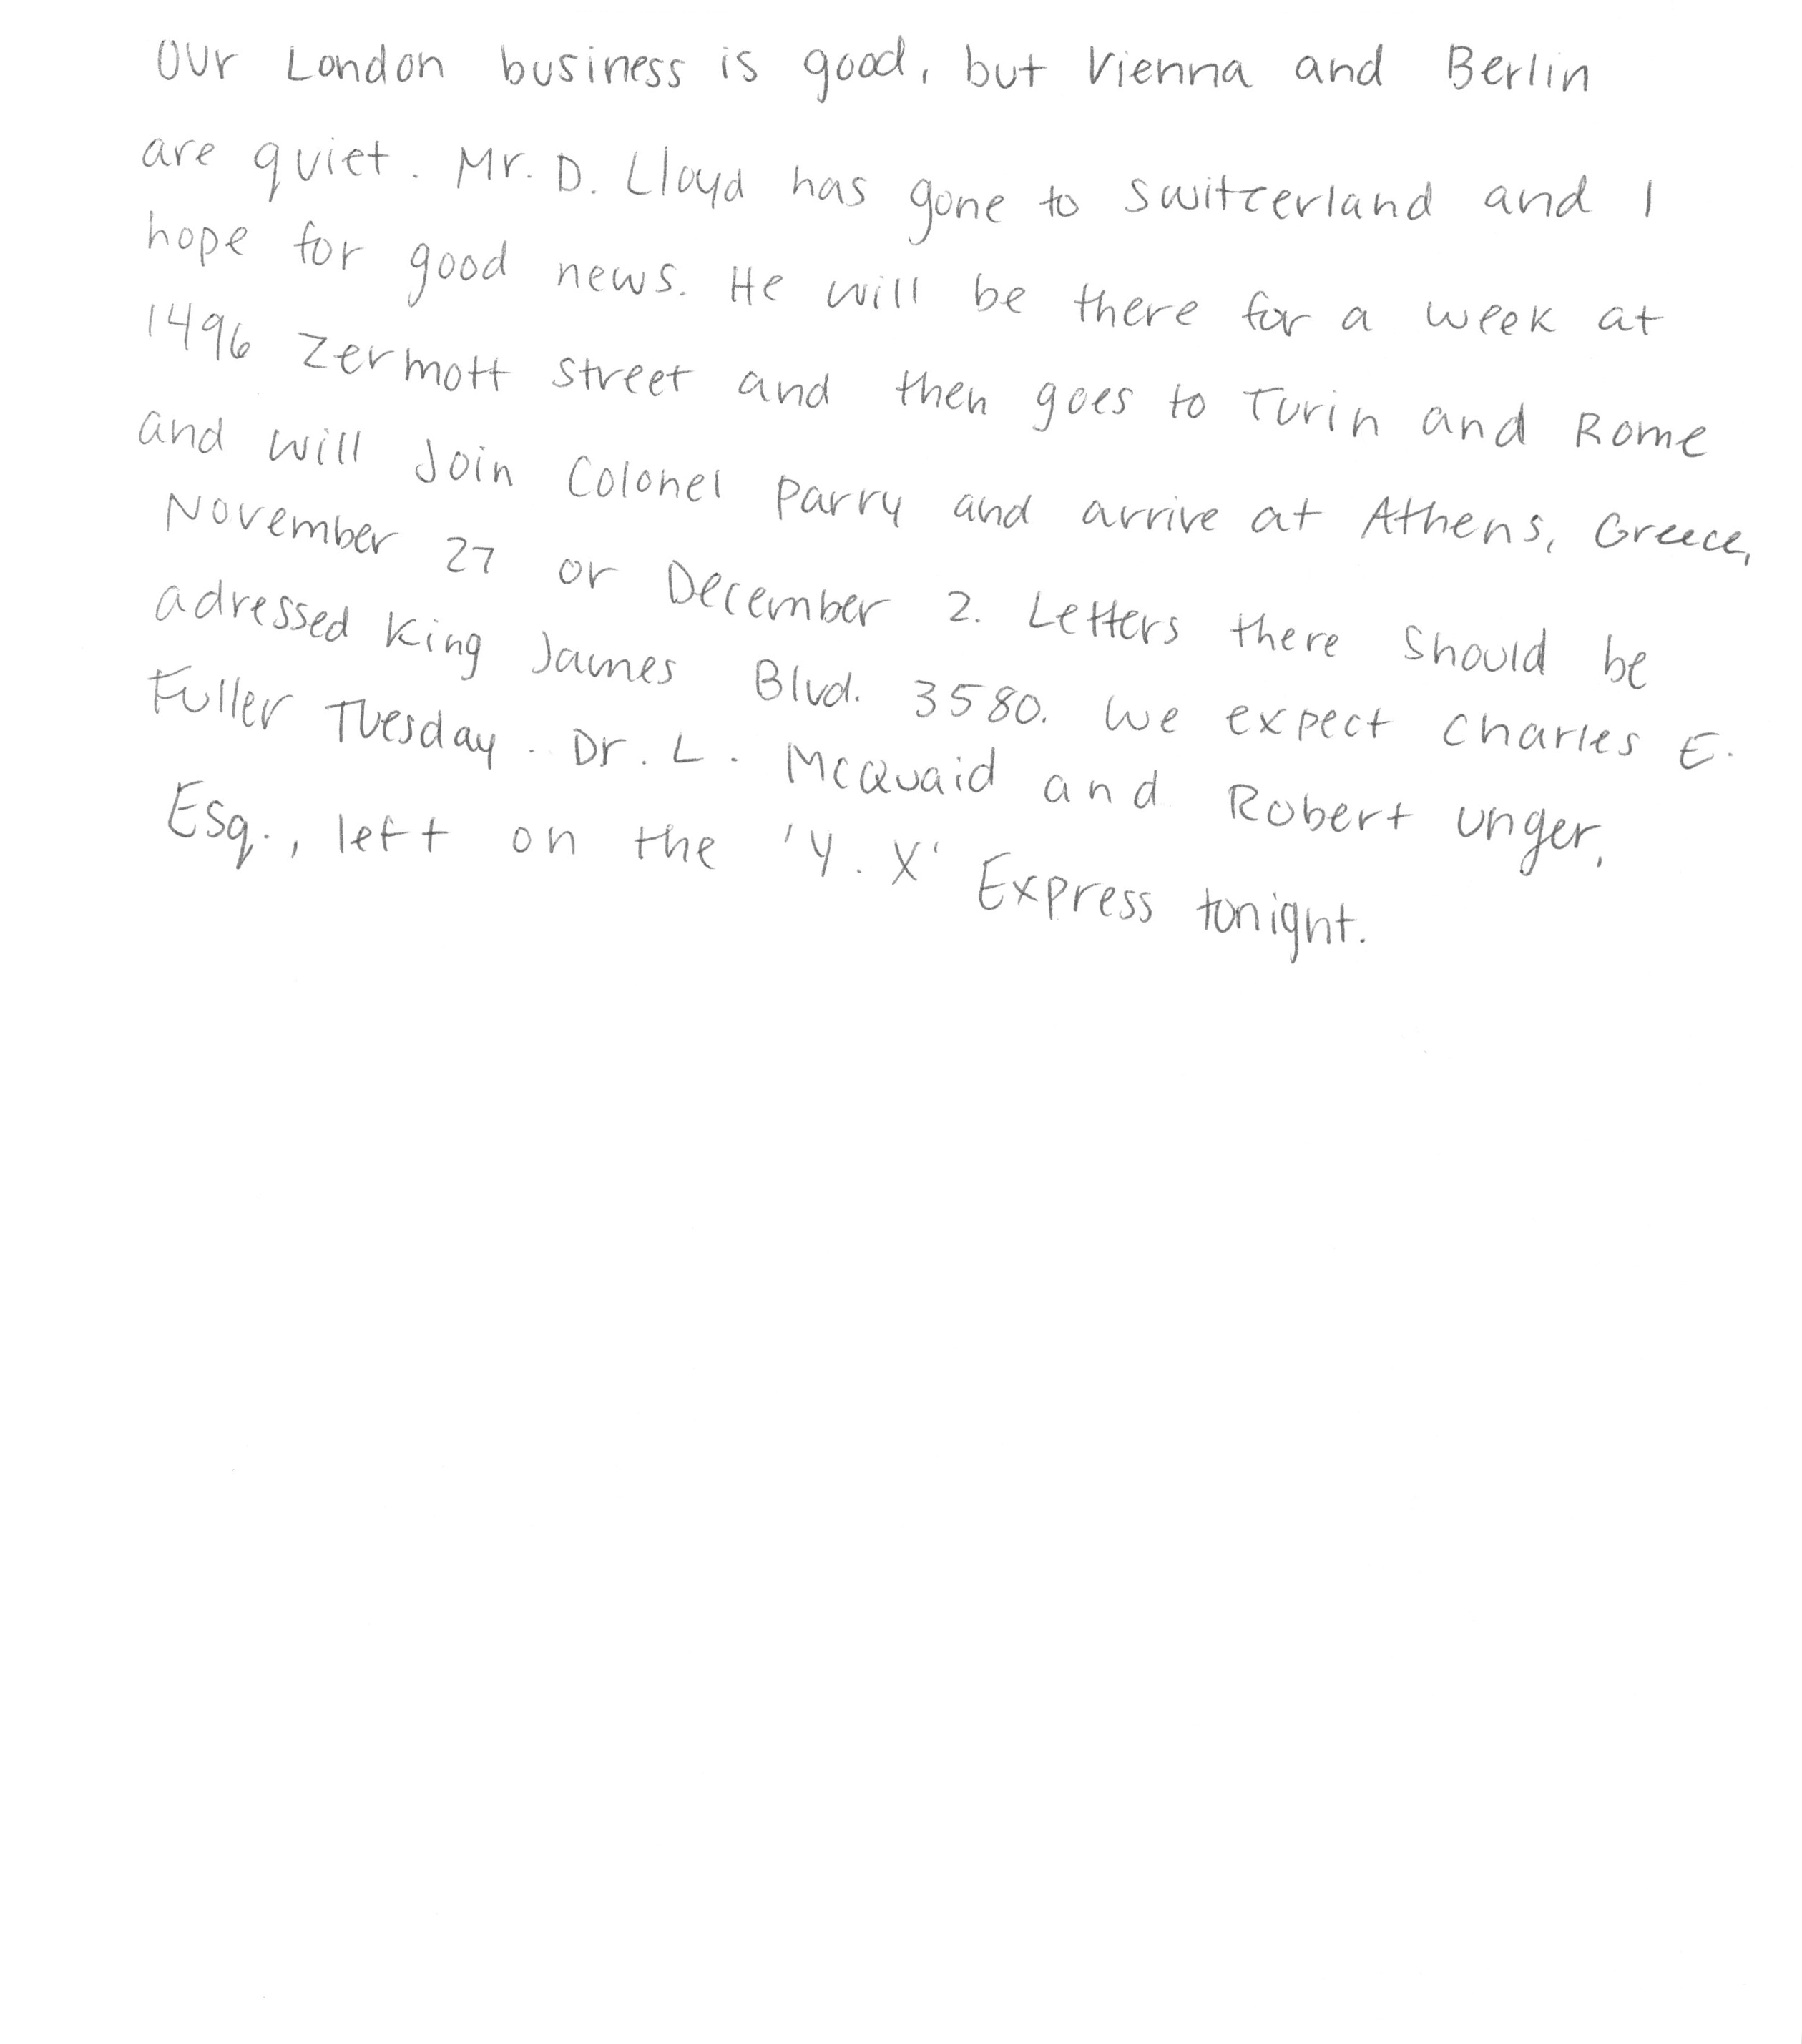 Our London business is good, but Vienna and Berlin
are quiet. Mr. D. Lloyd has gone to Switzerland and I
hope for good news. He will be there for a week at
1496 Zermott Street and then goes to Turin and Rome
and will Join Colonel Parry and arrive at Athens, Greece,
November 27 or December 2. Letters there Should be
adressed King James Blvd. 3580. We expect Charles E.
Fuller Tuesday. Dr. L. McQuaid and Robert Unger,
Esq., left on the 'Y. X' Express tonight.